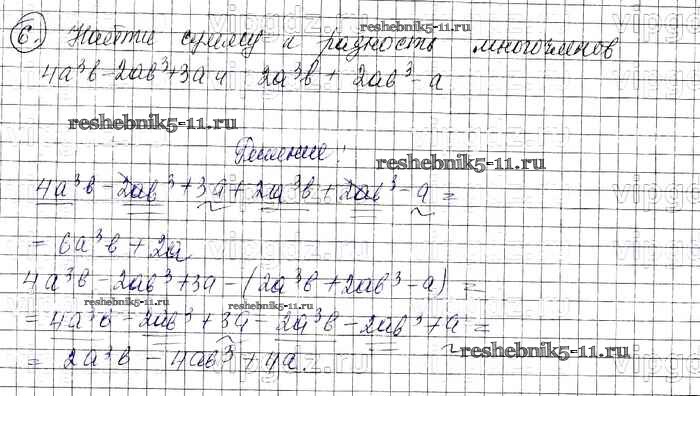 6. Найти сумму и разность многочленов
4a³b - 2ab³ + 3a и 2a³b + 2ab³ - a
reshebnik5-11.ru
Решение:
4a³b - 2ab³ + 3a + 2a³b + 2ab³ - a =
= 6a³b + 2a
4a³b - 2ab³ + 3a - (2a³b + 2ab³ - a) =
= 4a³b - 2ab³ + 3a - 2a³b - 2ab³ + a =
= 2a³b - 4ab³ + 4a.
reshebnik5-11.ru
reshebnik5-11.ru
reshebnik5-11.ru
reshebnik5-11.ru
reshebnik5-11.ru